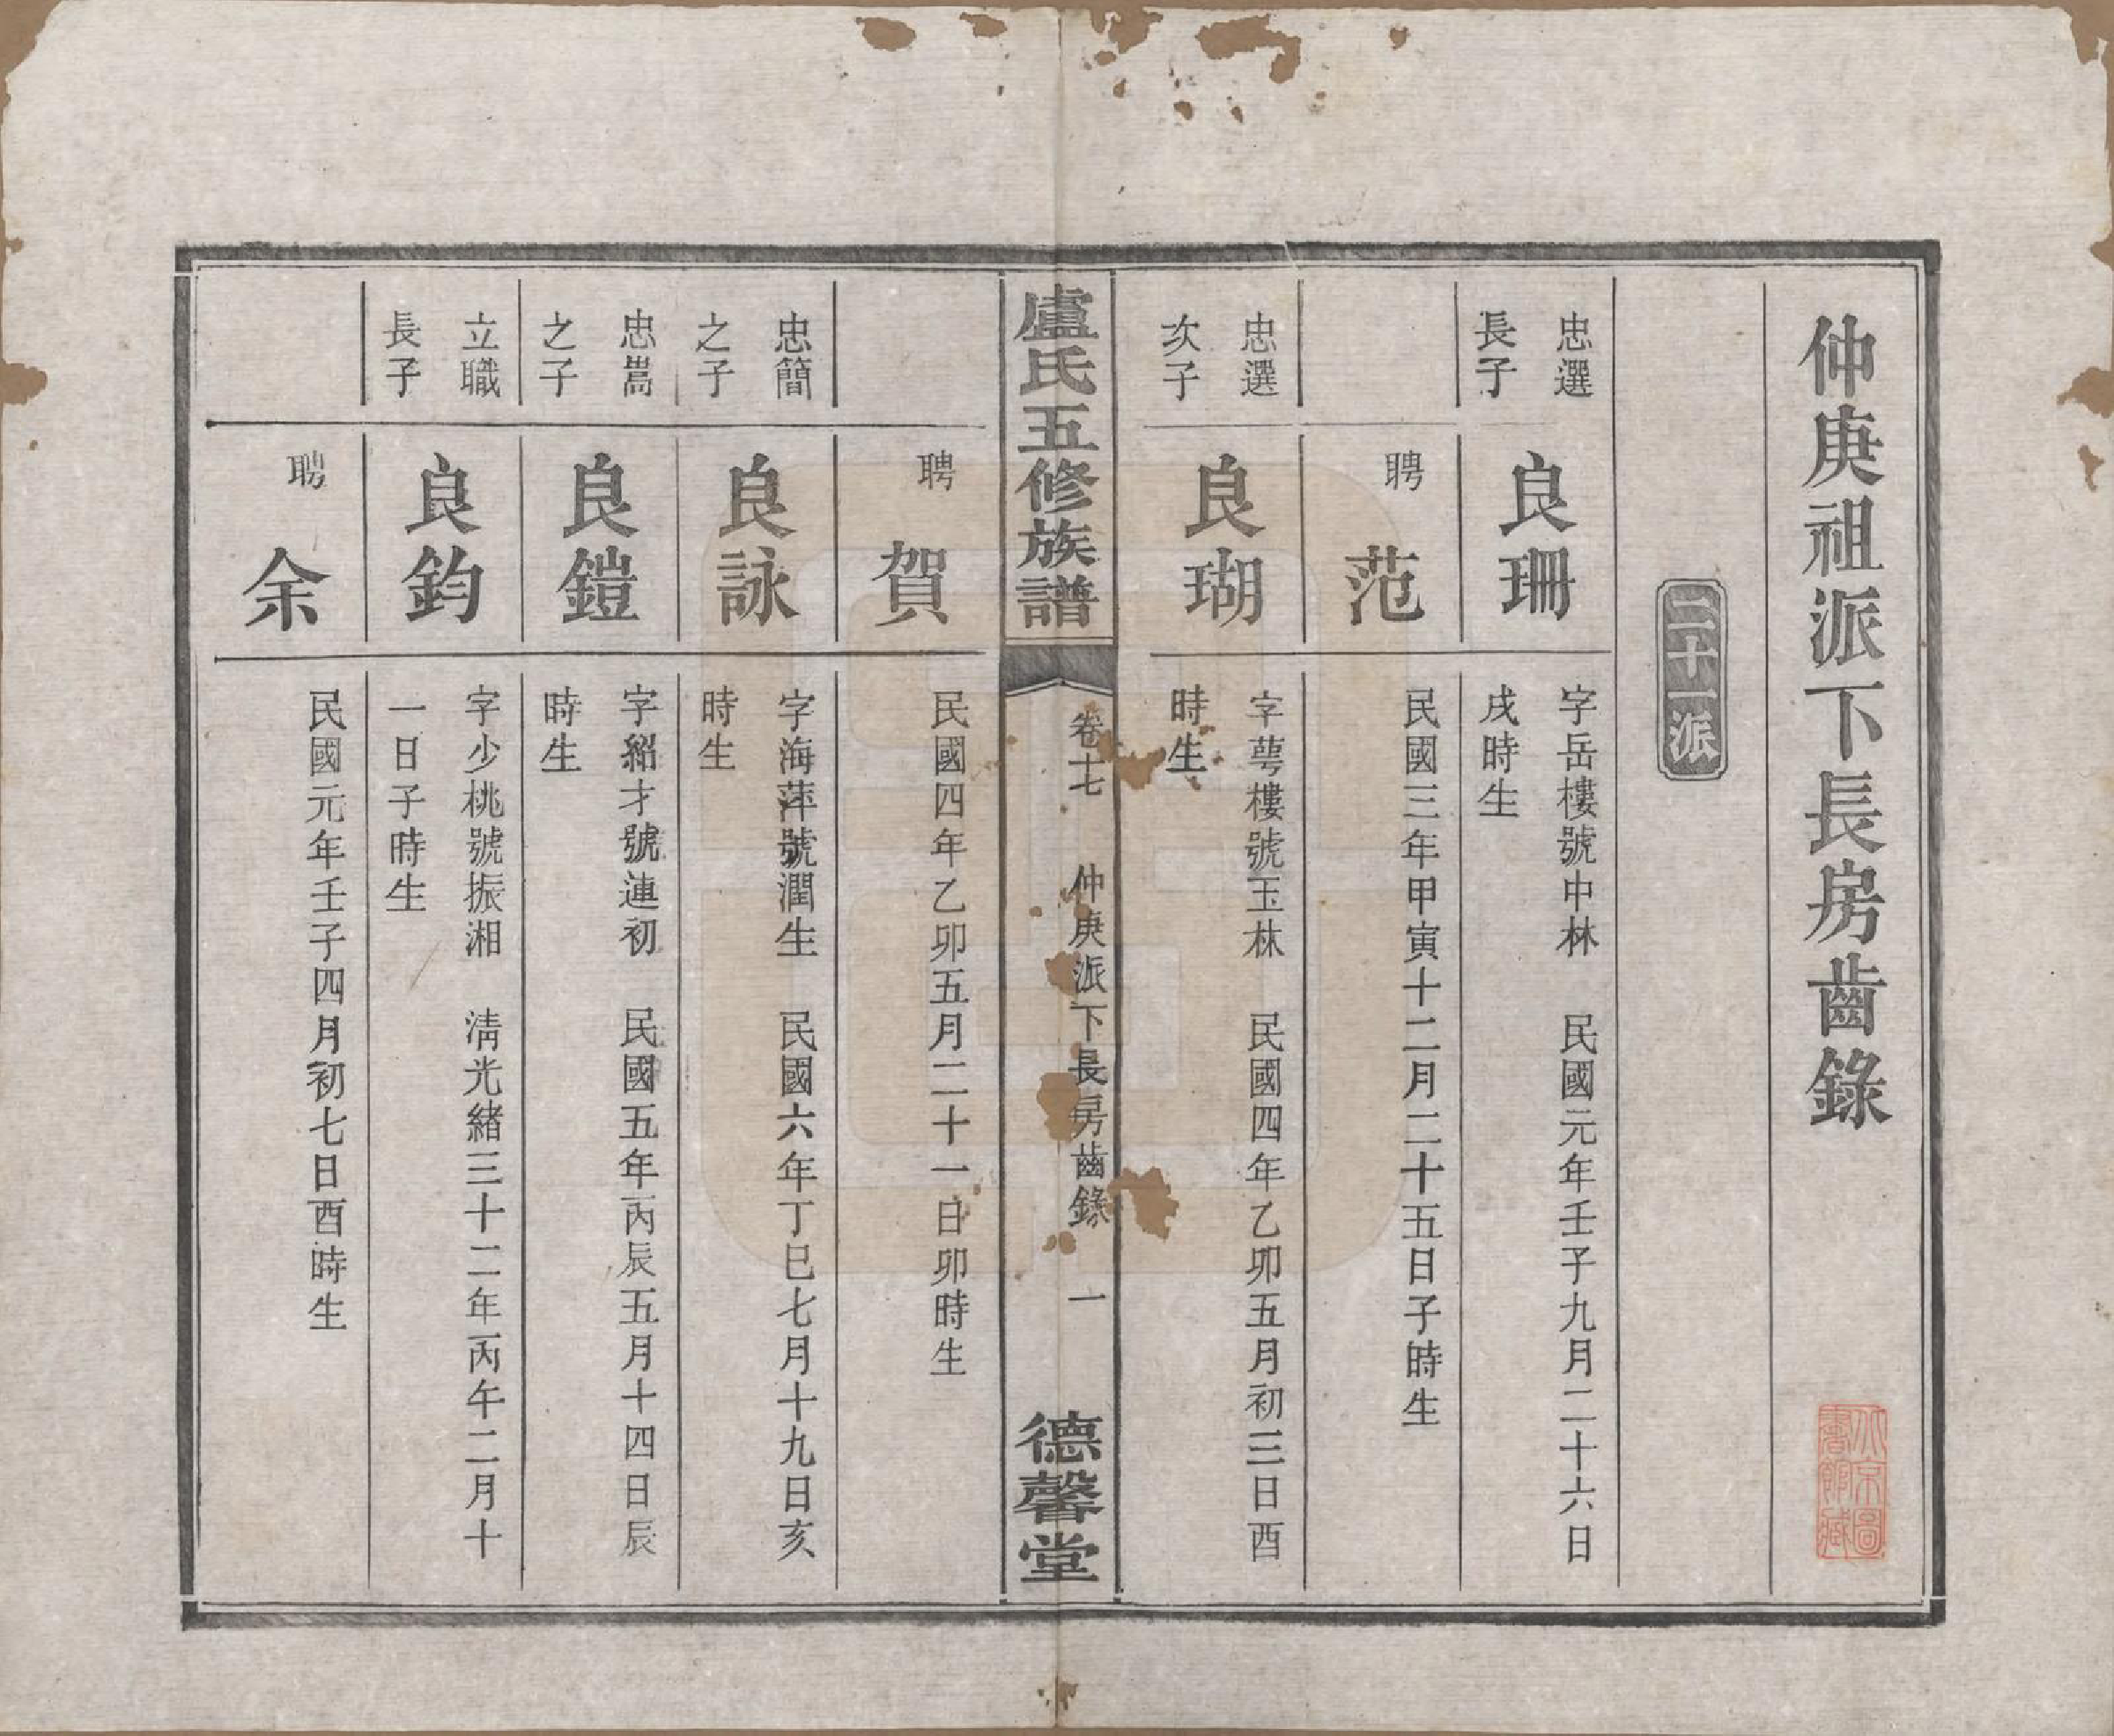 仲庚祖派下長房齒錄
二十一派
忠選
長子
良珊
字岳樓號中林　民國元年壬子九月二十六日
戌時生
聘
范
民國三年甲寅十二月二十五日子時生
忠選
次子
良瑚
字萼樓號玉林　民國四年乙卯五月初三日酉
時生
盧氏五修族譜
卷十七　仲庚派下長房齒錄　一
德馨堂
聘
賀
民國四年乙卯五月二十一日卯時生
忠簡
之子
良詠
字海萍號潤生　民國六年丁巳七月十九日亥
時生
忠嵩
之子
良鎧
字紹才號連初　民國五年丙辰五月十四日辰
時生
立職
長子
良鈞
字少桃號振湘　清光緒三十二年丙午二月十
一日子時生
聘
余
民國元年壬子四月初七日酉時生
北京圖
書館藏